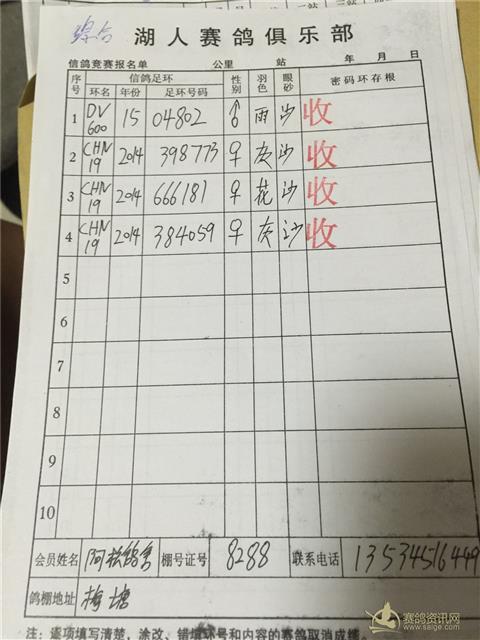 综合
湖人赛鸽俱乐部
信鸽竞赛报名单 公里 站 年 月 日
序号 信鸽足环 性别 羽色 眼砂 密码环存根
环名 年份 足环号码
1 DV600 15 04802 ♂ 雨 沙 收
2 CHN19 2014 398773 ♀ 灰 沙 收
3 CHN19 2014 666181 ♀ 花 沙 收
4 CHN19 2014 384059 ♀ 灰 沙 收
5
6
7
8
9
10
会员姓名 阿松鸽舍 棚号证号 8288 联系电话 13534516449
鸽棚地址 梅塘
注：逐项填写清楚，涂改、错填环号和内容的赛鸽取消成绩。
赛鸽资讯网
www.saige.com